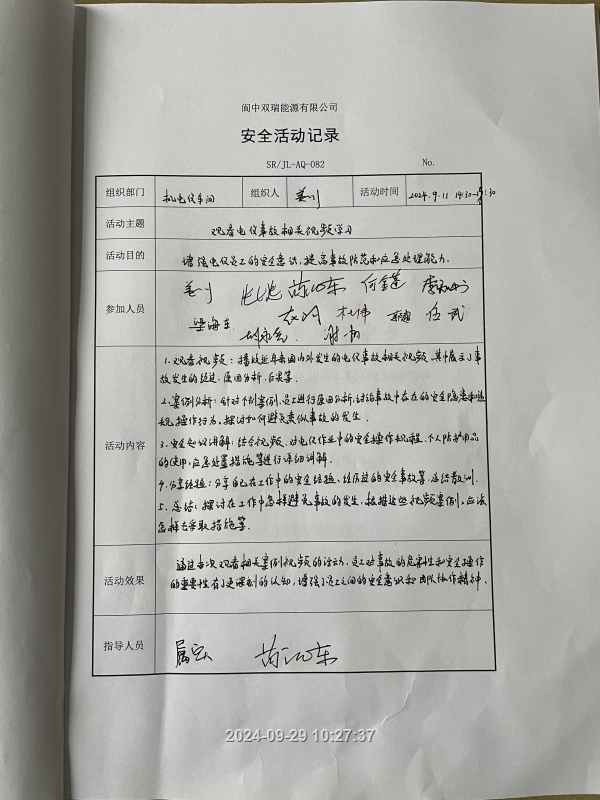 阆中双瑞能源有限公司
安全活动记录
SR/JL-AQ-082 No.
组织部门 机电仪车间 组织人 姜川 活动时间 2024.9.11 14:30-15:30
活动主题 观看电仪事故相关视频学习
活动目的 增强电仪员工的安全意识,提高事故防范和应急处理能力.
参加人员 姜川
梁海东 杜伟 伍武
活动内容
1.观看视频:播放近年来国内外发生的电仪事故相关视频,其中展示了事
故发生的经过、原因分析、后果等.
2.案例分析:针对个别案例,员工进行原因分析,讨论事故中存在的安全隐患和违
规操作行为,探讨如何避免类似事故的发生.
3.安全知识讲解:结合视频,对电仪作业中的安全操作规程、个人防护用品
的使用,应急处置措施等进行详细讲解.
4.分享经验:分享自己在工作中的安全经验、经历过的安全事故等,总结教训.
5.总结:探讨在工作中怎样避免事故的发生,根据这些视频案例,应该
怎样去采取措施等.
活动效果
通过本次观看相关案例视频的活动,员工对事故的危害性和安全操作
的重要性有了更深刻的认知,增强了员工之间的安全意识和团队协作精神.
指导人员
2024-09-29 10:27:37